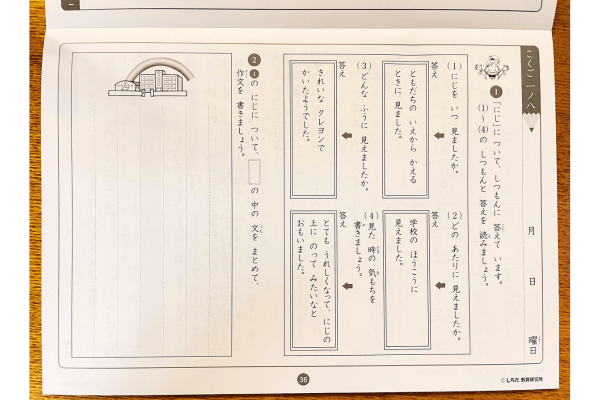 こくご 一ノ八
月 日 曜日
1 「にじ」に ついて、しつもんに 答えて います。
(1)〜(4)の しつもんと 答えを 読みましょう。
(1)にじを いつ 見ましたか。
答え
ともだちの いえから かえる
ときに 見ました。
(2)どの あたりに 見えましたか。
答え
学校の ほうこうに
見えました。
(3)どんな ふうに 見えましたか。
答え
きれいな クレヨンで
かいたようでした。
(4)見た 時の 気もちを
書きましょう。
答え
とても うれしくなって、にじの
上に のって みたいなと
おもいました。
2 1の にじに ついて、 の 中の 文を まとめて、
作文を 書きましょう。
36
© しちだ・教育研究所